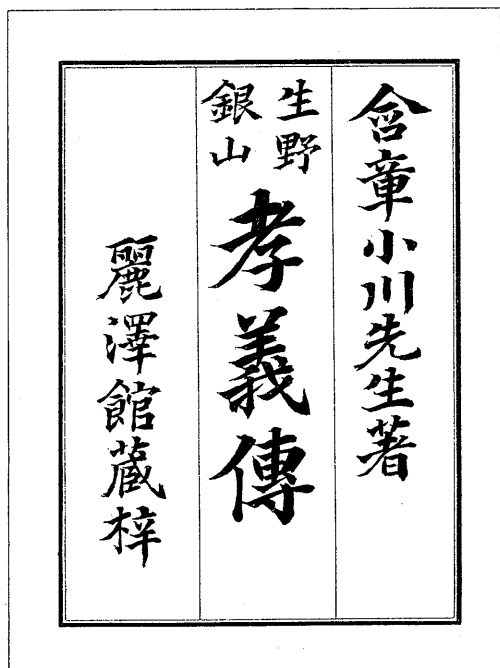 含章小川先生著
生野
銀山
孝義傳
麗澤館蔵梓